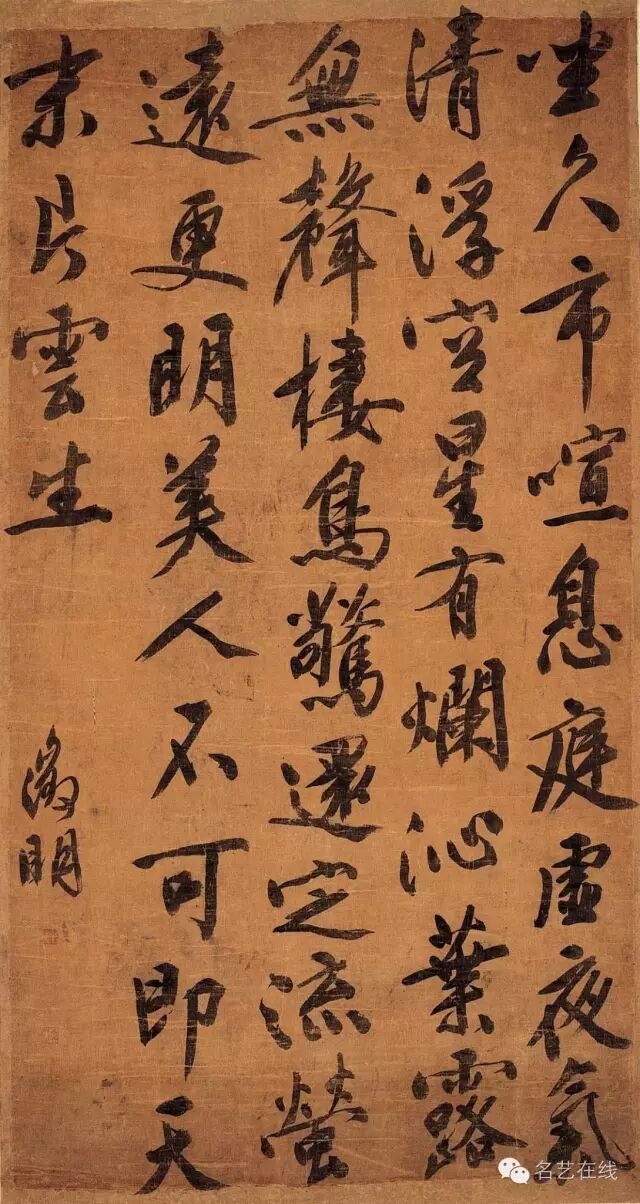 坐久市喧息庭虛夜氣
清浮空星有爛沁葉露
無聲棲鳥驚還定流螢
遠更明美人不可即天
末片雲生
徵明
名艺在线